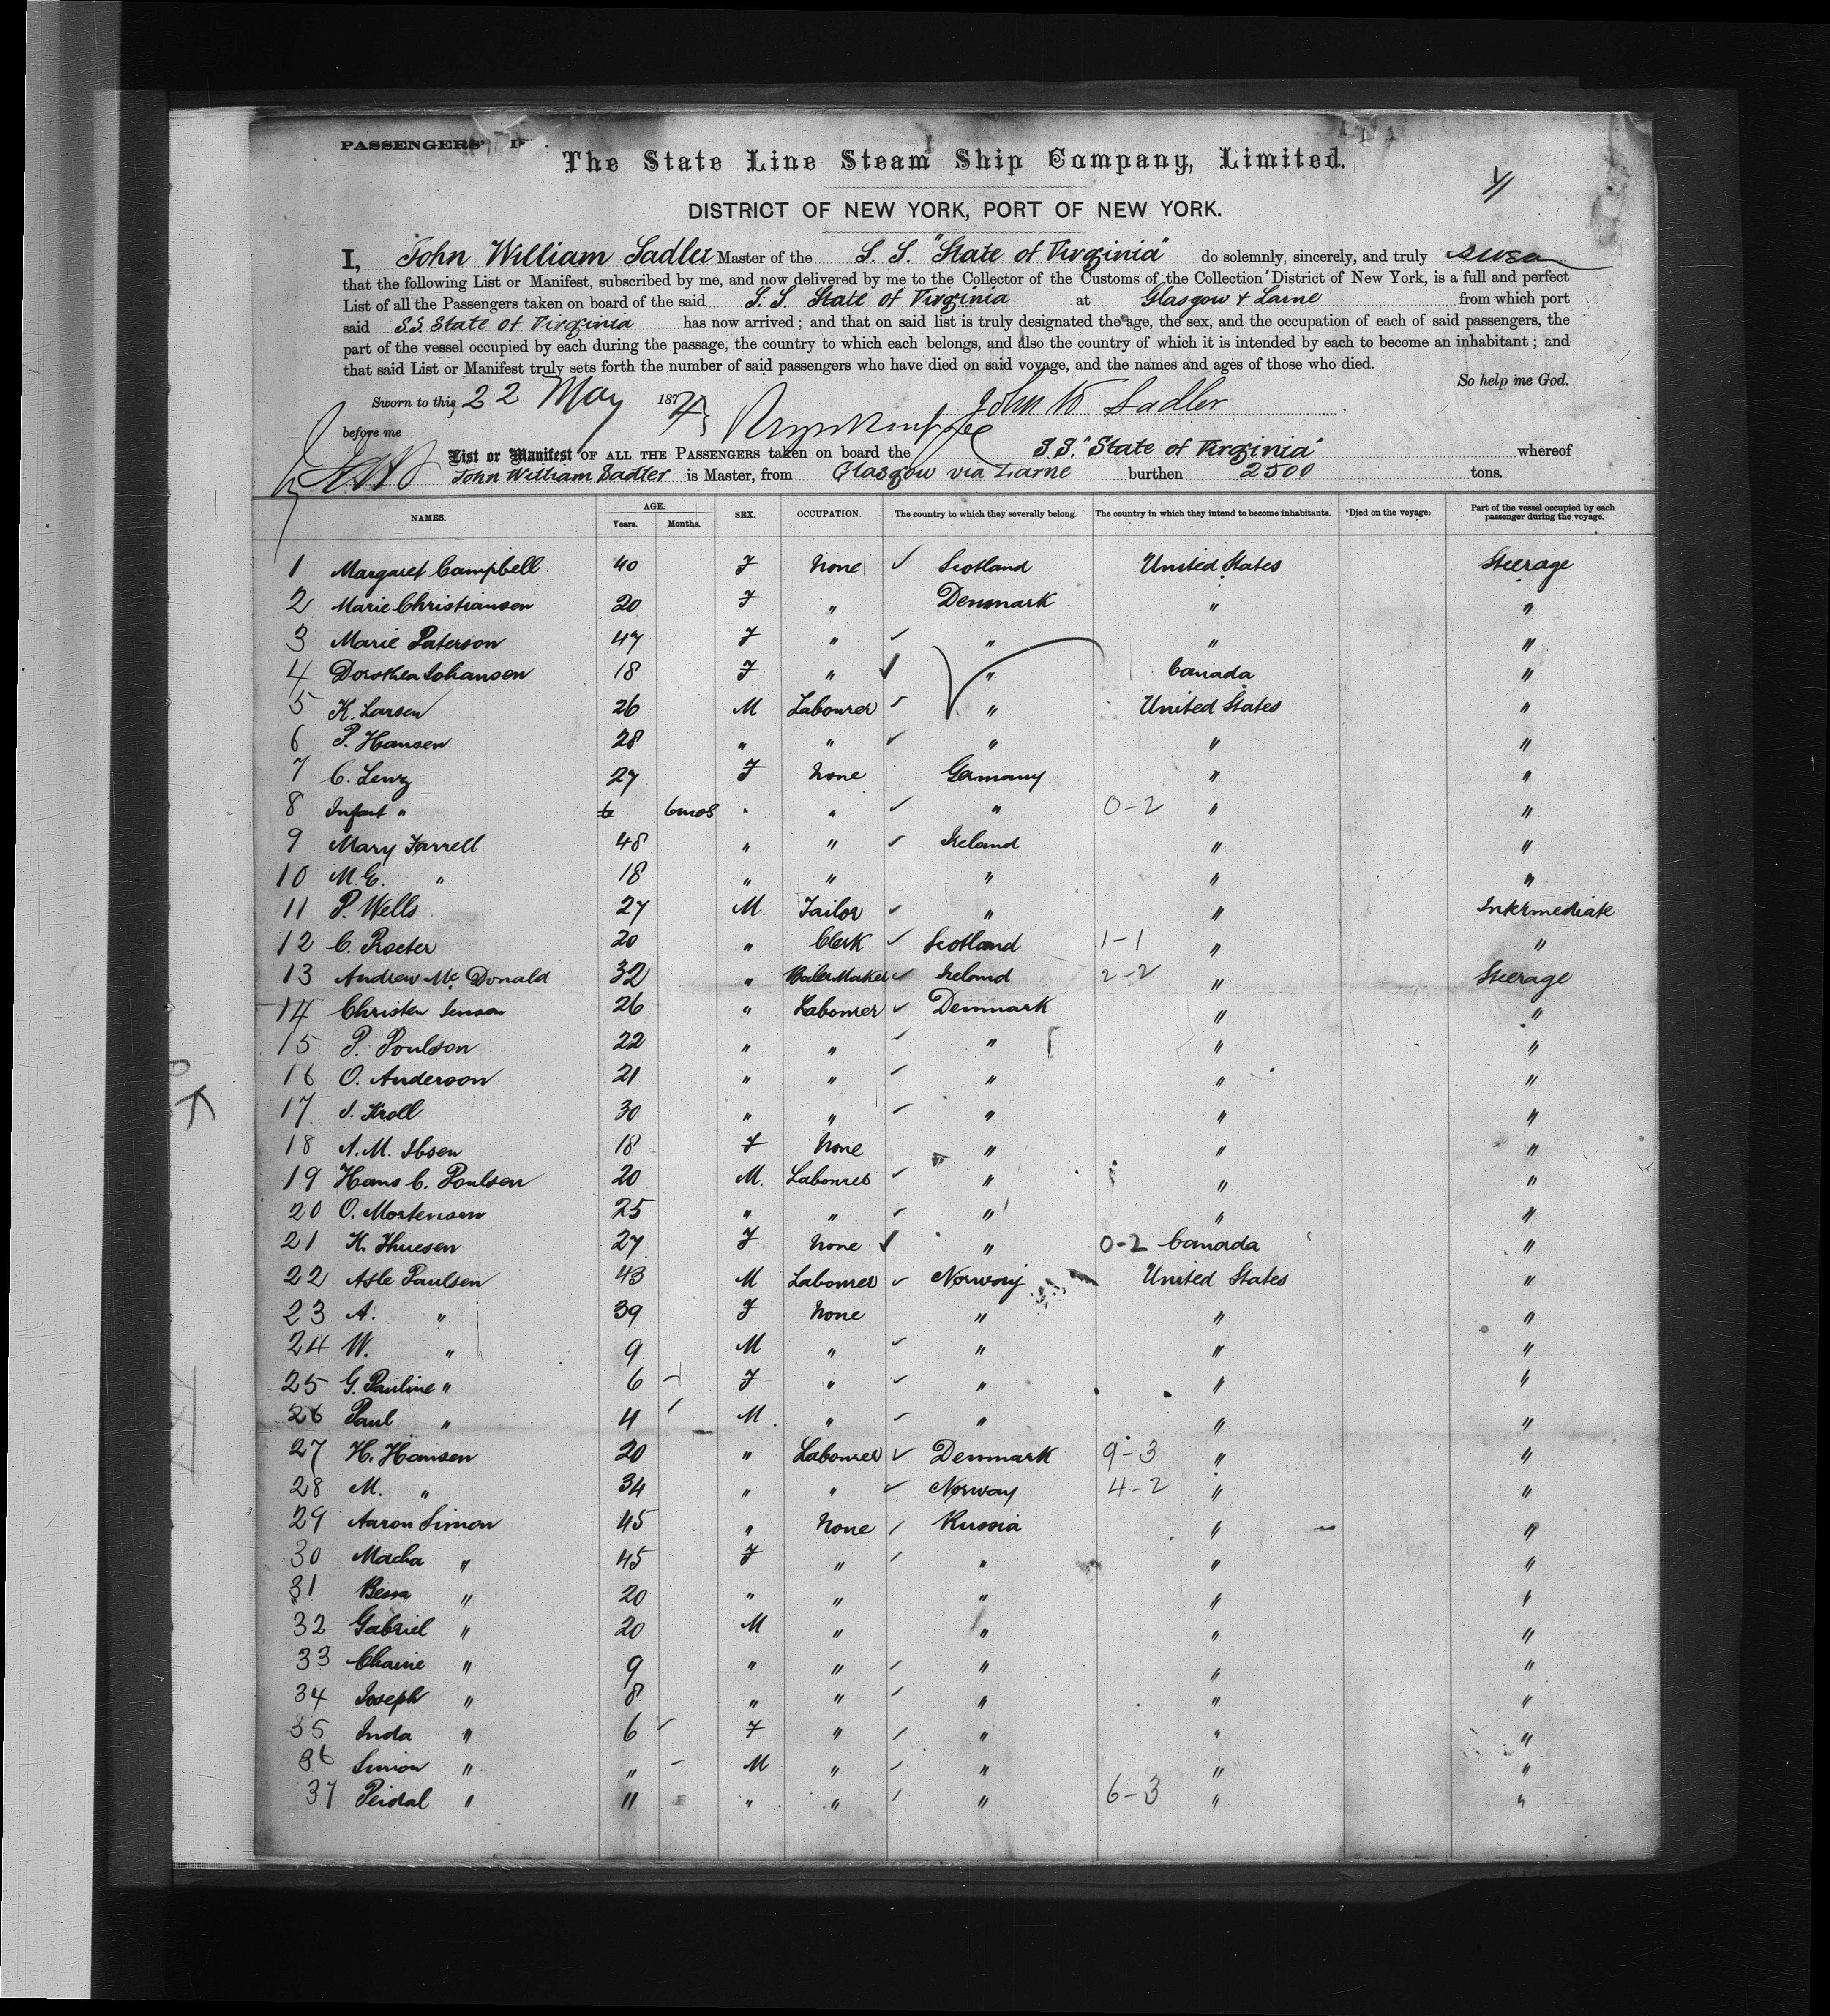 PASSENGERS'
The State Line Steam Ship Company, Limited.
DISTRICT OF NEW YORK, PORT OF NEW YORK.
I, John William Sadler Master of the S. S. "State of Virginia" do solemnly, sincerely, and truly swear
that the following List or Manifest, subscribed by me, and now delivered by me to the Collector of the Customs of the Collection District of New York, is a full and perfect
List of all the Passengers taken on board of the said S. S. State of Virginia at Glasgow & Larne from which port
said S.S. State of Virginia has now arrived; and that on said list is truly designated the age, the sex, and the occupation of each of said passengers, the
part of the vessel occupied by each during the passage, the country to which each belongs, and also the country of which it is intended by each to become an inhabitant; and
that said List or Manifest truly sets forth the number of said passengers who have died on said voyage, and the names and ages of those who died.
So help me God.
Sworn to this, 22 May 187 John W Sadler
before me
List or Manifest OF ALL THE PASSENGERS taken on board the S.S. "State of Virginia" whereof
John William Sadler is Master, from Glasgow via Larne burthen 2500 tons.
NAMES. AGE. Years. Months. SEX. OCCUPATION. The country to which they severally belong. The country in which they intend to become inhabitants. *Died on the voyage. Part of the vessel occupied by each passenger during the voyage.
1 Margaret Campbell 40 F None ✓ Scotland United States Steerage
2 Marie Christiansen 20 F " Denmark " "
3 Marie Paterson 47 F " ✓ " " "
4 Dorothea Johansen 18 F " ✓ " Canada "
5 K. Larsen 26 M Labourer ✓ " United States "
6 P. Hansen 28 " " ✓ " " "
7 C. Lenz 27 F None Germany " "
8 Infant " 6 6mos " " ✓ " 0-2 " "
9 Mary Farrell 48 " " ✓ Ireland " "
10 M.E. " 18 " " " " "
11 P. Wells 27 M. Tailor ✓ " " Intermediate
12 C. Procter 20 " Clerk ✓ Scotland 1-1 " "
13 Andrew Mc Donald 32 " Boiler Maker ✓ Ireland 2-2 " Steerage
14 Christen Jensen 26 " Labourer ✓ Denmark " "
15 P. Poulson 22 " " ✓ " " "
16 O. Anderson 21 " " ✓ " " "
17 J. Kroll 30 " " ✓ " " "
18 A.M. Ibsen 18 F None " " "
19 Hans C. Poulsen 20 M. Labourer ✓ " " "
20 O. Mortensen 25 " " ✓ " " "
21 K. Thuesen 27 F None ✓ " 0-2 Canada "
22 Asle Paulsen 43 M Labourer ✓ Norway United States "
23 A. " 39 F None " " "
24 W. " 9 M " ✓ " " "
25 G. Pauline " 6 F " ✓ " " "
26 Paul " 4 M " ✓ " " "
27 H. Hansen 20 " Labourer ✓ Denmark 9-3 " "
28 M. " 34 " " ✓ Norway 4-2 " "
29 Aaron Simon 45 " None ✓ Russia " "
30 Macha " 45 F " ✓ " " "
31 Bessa " 20 " " " " "
32 Gabriel " 20 M " " " "
33 Chaine " 9 " " ✓ " " "
34 Joseph " 8 " " ✓ " " "
35 Inda " 6 F " ✓ " " "
36 Simon " " M " ✓ " " "
37 Peidal " 11 " " ✓ " 6-3 " "